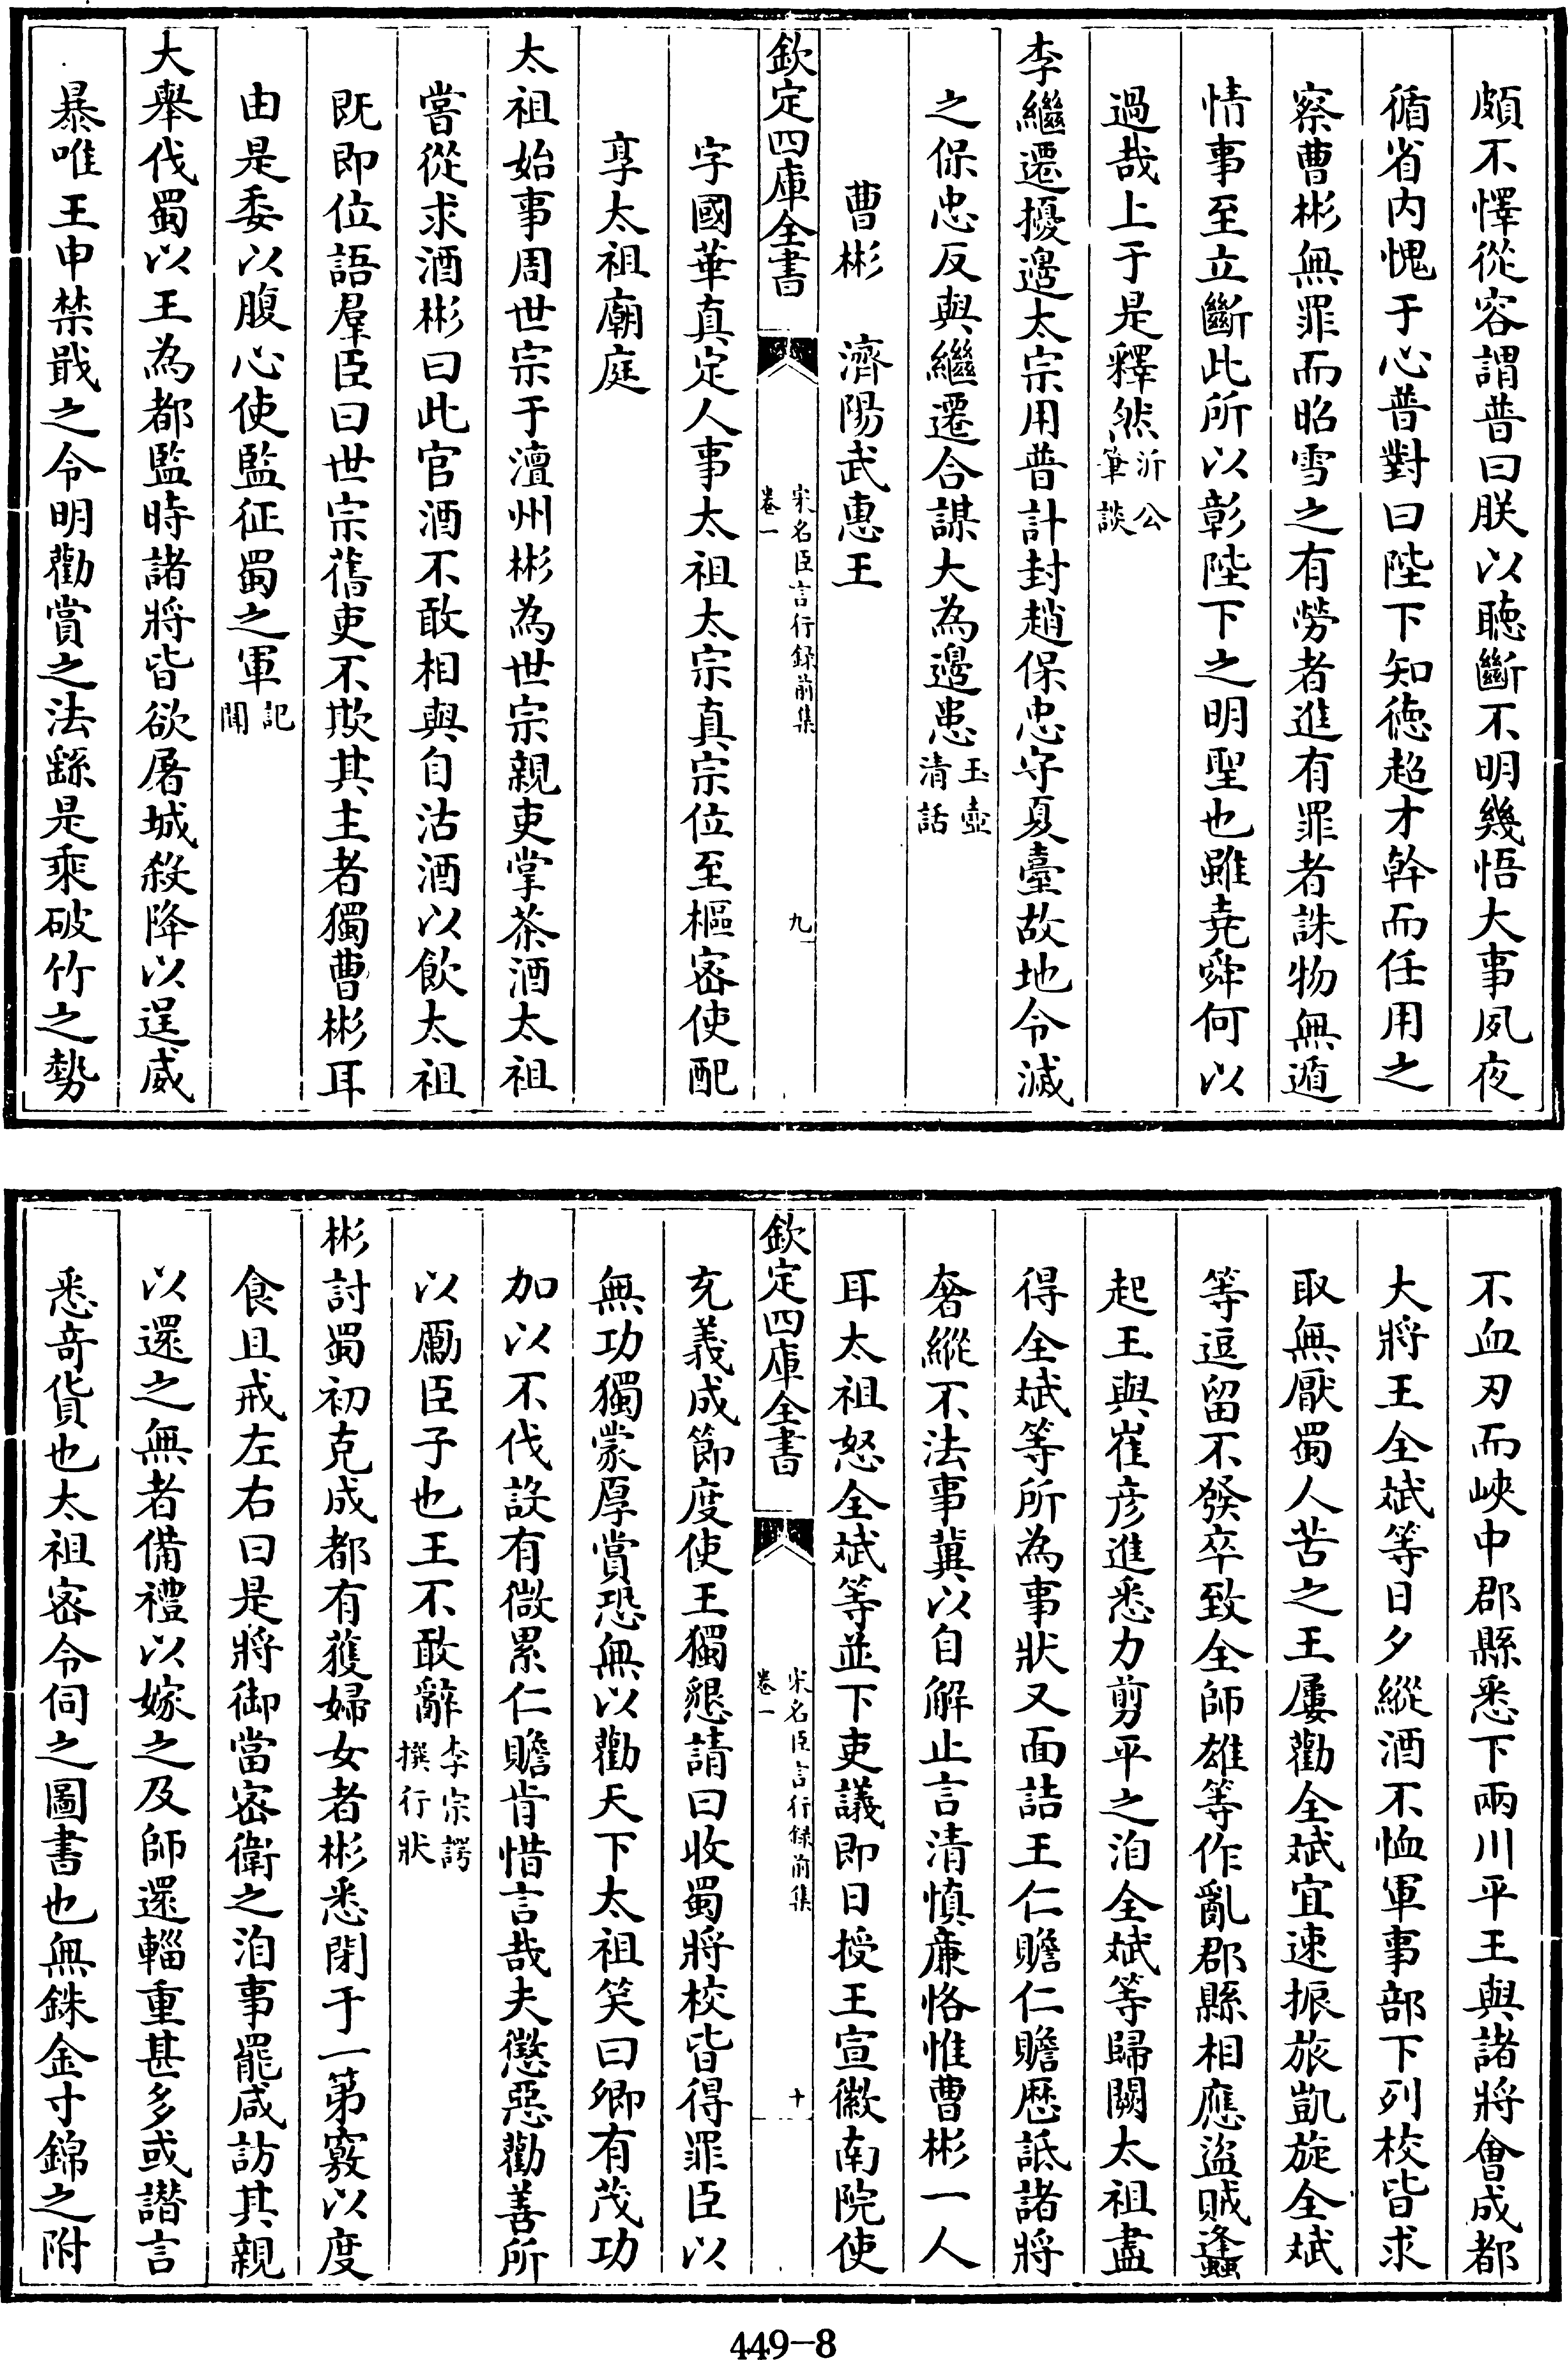 頗不懌從容謂普曰朕以聽斷不明幾悟大事夙夜
循省内愧于心普對曰陛下知徳超才幹而任用之
察曹彬無罪而昭雪之有勞者進有罪者誅物無遁
情事至立斷此所以彰陛下之明聖也雖堯舜何以
過哉上于是釋然沂公筆談
李繼遷擾邉太宗用普計封趙保忠守夏臺故地令滅
之保忠反與繼遷合謀大為邉患玉壺清話
曹彬　濟陽武惠王
欽定四庫全書
宋名臣言行録前集
卷一
九
字國華真定人事太祖太宗真宗位至樞密使配
享太祖廟庭
太祖始事周世宗于澶州彬為世宗親吏掌茶酒太祖
嘗從求酒彬曰此官酒不敢相與自沽酒以飲太祖
既即位語羣臣曰世宗舊吏不欺其主者獨曹彬耳
由是委以腹心使監征蜀之軍記聞
大舉伐蜀以王為都監時諸將皆欲屠城殺降以逞威
暴唯王申禁戢之令明勸賞之法繇是乘破竹之勢
不血刃而峽中郡縣悉下兩川平王與諸將會成都
大將王全斌等日夕縱酒不恤軍事部下列校皆求
取無厭蜀人苦之王屢勸全斌宜速振旅凱旋全斌
等逗留不發卒致全師雄等作亂郡縣相應盜賊蠭
起王與崔彦進悉力剪平之洎全斌等歸闕太祖盡
得全斌等所為事狀又面詰王仁贍仁贍歴詆諸將
奢縱不法事冀以自解止言清慎廉恪惟曹彬一人
耳太祖怒全斌等並下吏議即日授王宣徽南院使
欽定四庫全書
宋名臣言行録前集
卷一
十
充義成節度使王獨懇請曰收蜀將校皆得罪臣以
無功獨蒙厚賞恐無以勸天下太祖笑曰卿有茂功
加以不伐設有微累仁贍肯惜言哉夫懲惡勸善所
以勵臣子也王不敢辭李宗諤撰行狀
彬討蜀初克成都有獲婦女者彬悉閉于一第竅以度
食且戒左右曰是將御當密衛之洎事罷咸訪其親
以還之無者備禮以嫁之及師還輜重甚多或譛言
悉竒貨也太祖密令伺之圖書也無銖金寸錦之附
449-8